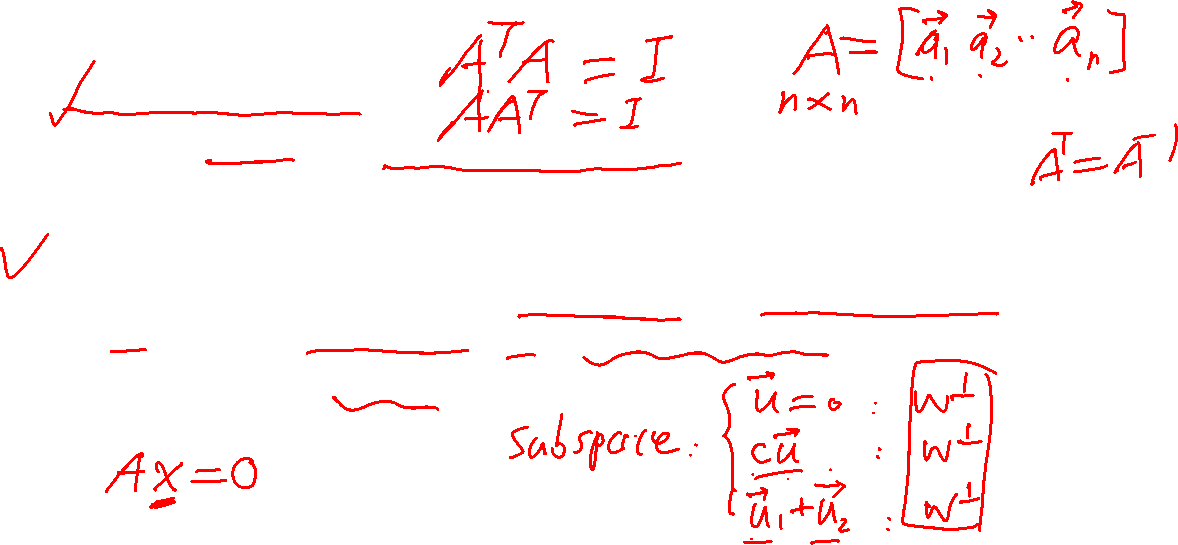 AᵀA = I
AAᵀ = I
A = [a⃗₁ a⃗₂ ·· a⃗ₙ]
n×n
Aᵀ = A⁻¹
Ax = 0
Subspace: { u⃗ = 0 : W⊥
cu⃗ : W⊥
u⃗₁ + u⃗₂ : W⊥